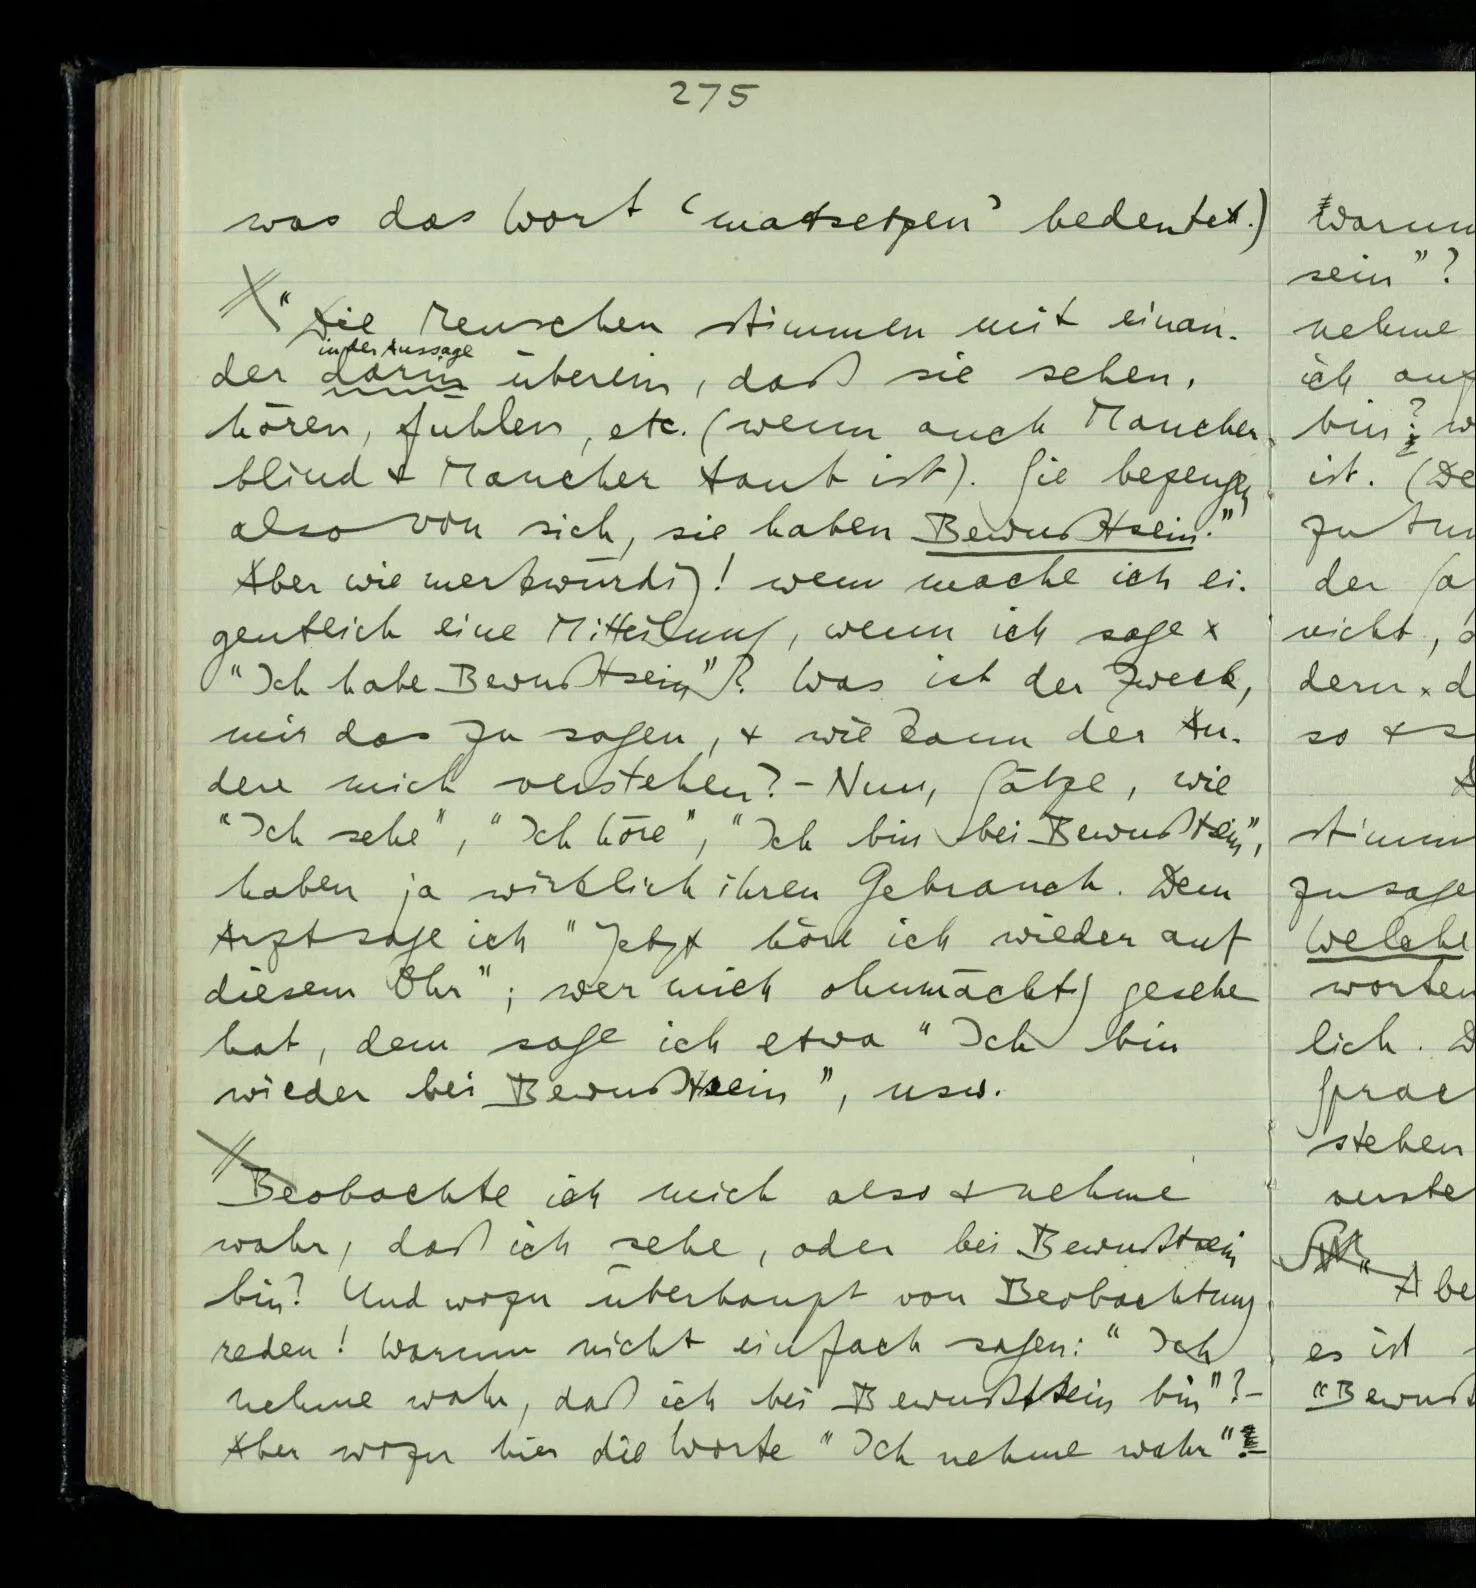 275
was das Wort ‘mattsetzen’ bedeutet.)
“Die Menschen stimmen mit einan-
in der Aussage
der darin überein, daß sie sehen,
hören, fühlen, etc. (wenn auch Mancher
blind & Mancher taub ist). Sie bezeugen
also von sich, sie haben Bewußtsein.”
Aber wie merkwürdig! wem mache ich ei-
gentlich eine Mitteilung, wenn ich sage
“Ich habe Bewußtsein”? Was ist der Zweck,
mir das zu sagen, & wie kann der An-
dere mich verstehen? – Nun, Sätze, wie
“Ich sehe”, “Ich höre”, “Ich bin bei Bewußtsein”,
haben ja wirklich ihren Gebrauch. Dem
Arzt sage ich “Jetzt höre ich wieder auf
diesem Ohr”; wer mich ohnmächtig gesehen
hat, dem sage ich etwa “Ich bin
wieder bei Bewußtsein”, usw.
Beobachte ich mich also & nehme
wahr, daß ich sehe, oder bei Bewußtsein
bin? Und wozu überhaupt von Beobachtung
reden! Warum nicht einfach sagen: “Ich
nehme wahr, daß ich bei Bewußtsein bin”? –
Aber wozu hier die Worte “Ich nehme wahr”
Warum
sein”?
nehme
ich auf
bin?
ist. (De
zu tun
der
nicht,
dern
so & s
stimm
zu sage
Welche
worten
lich. D
Sprac
stehen
verste
“Abe
es ist
“Bewuß